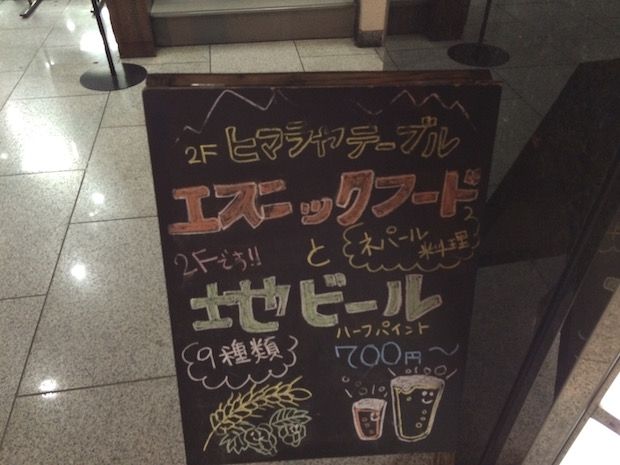 2F ヒマラヤテーブル
エスニックフード
2Fです!!
と
ネパール
料理
地ビール
ハーフパイント
9種類
700円〜